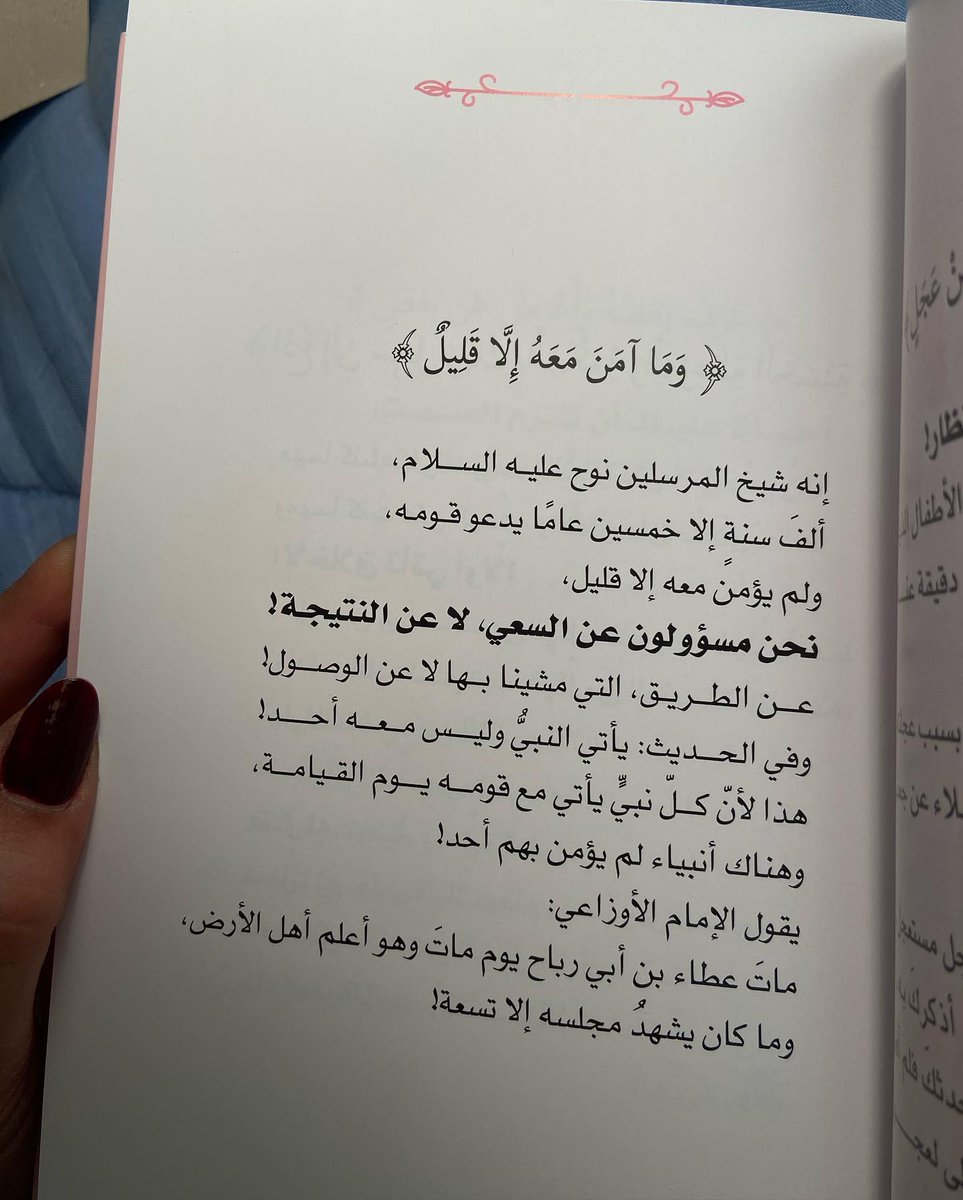 ﴿ وَمَا آمَنَ مَعَهُ إِلَّا قَلِيلٌ ﴾
إنه شيخ المرسلين نوح عليه السلام،
ألفَ سنةٍ إلا خمسين عامًا يدعو قومه،
ولم يؤمن معه إلا قليل،
نحن مسؤولون عن السعي، لا عن النتيجة!
عن الطريق، التي مشينا بها لا عن الوصول!
وفي الحديث: يأتي النبيُّ وليس معه أحد!
هذا لأنّ كلّ نبيٍّ يأتي مع قومه يوم القيامة،
وهناك أنبياء لم يؤمن بهم أحد!
يقول الإمام الأوزاعي:
ماتَ عطاء بن أبي رباح يوم ماتَ وهو أعلم أهل الأرض،
وما كان يشهدُ مجلسه إلا تسعة!
عَجَلٍ
الأطفال
دقيقة
بسبب
أذكركَ به